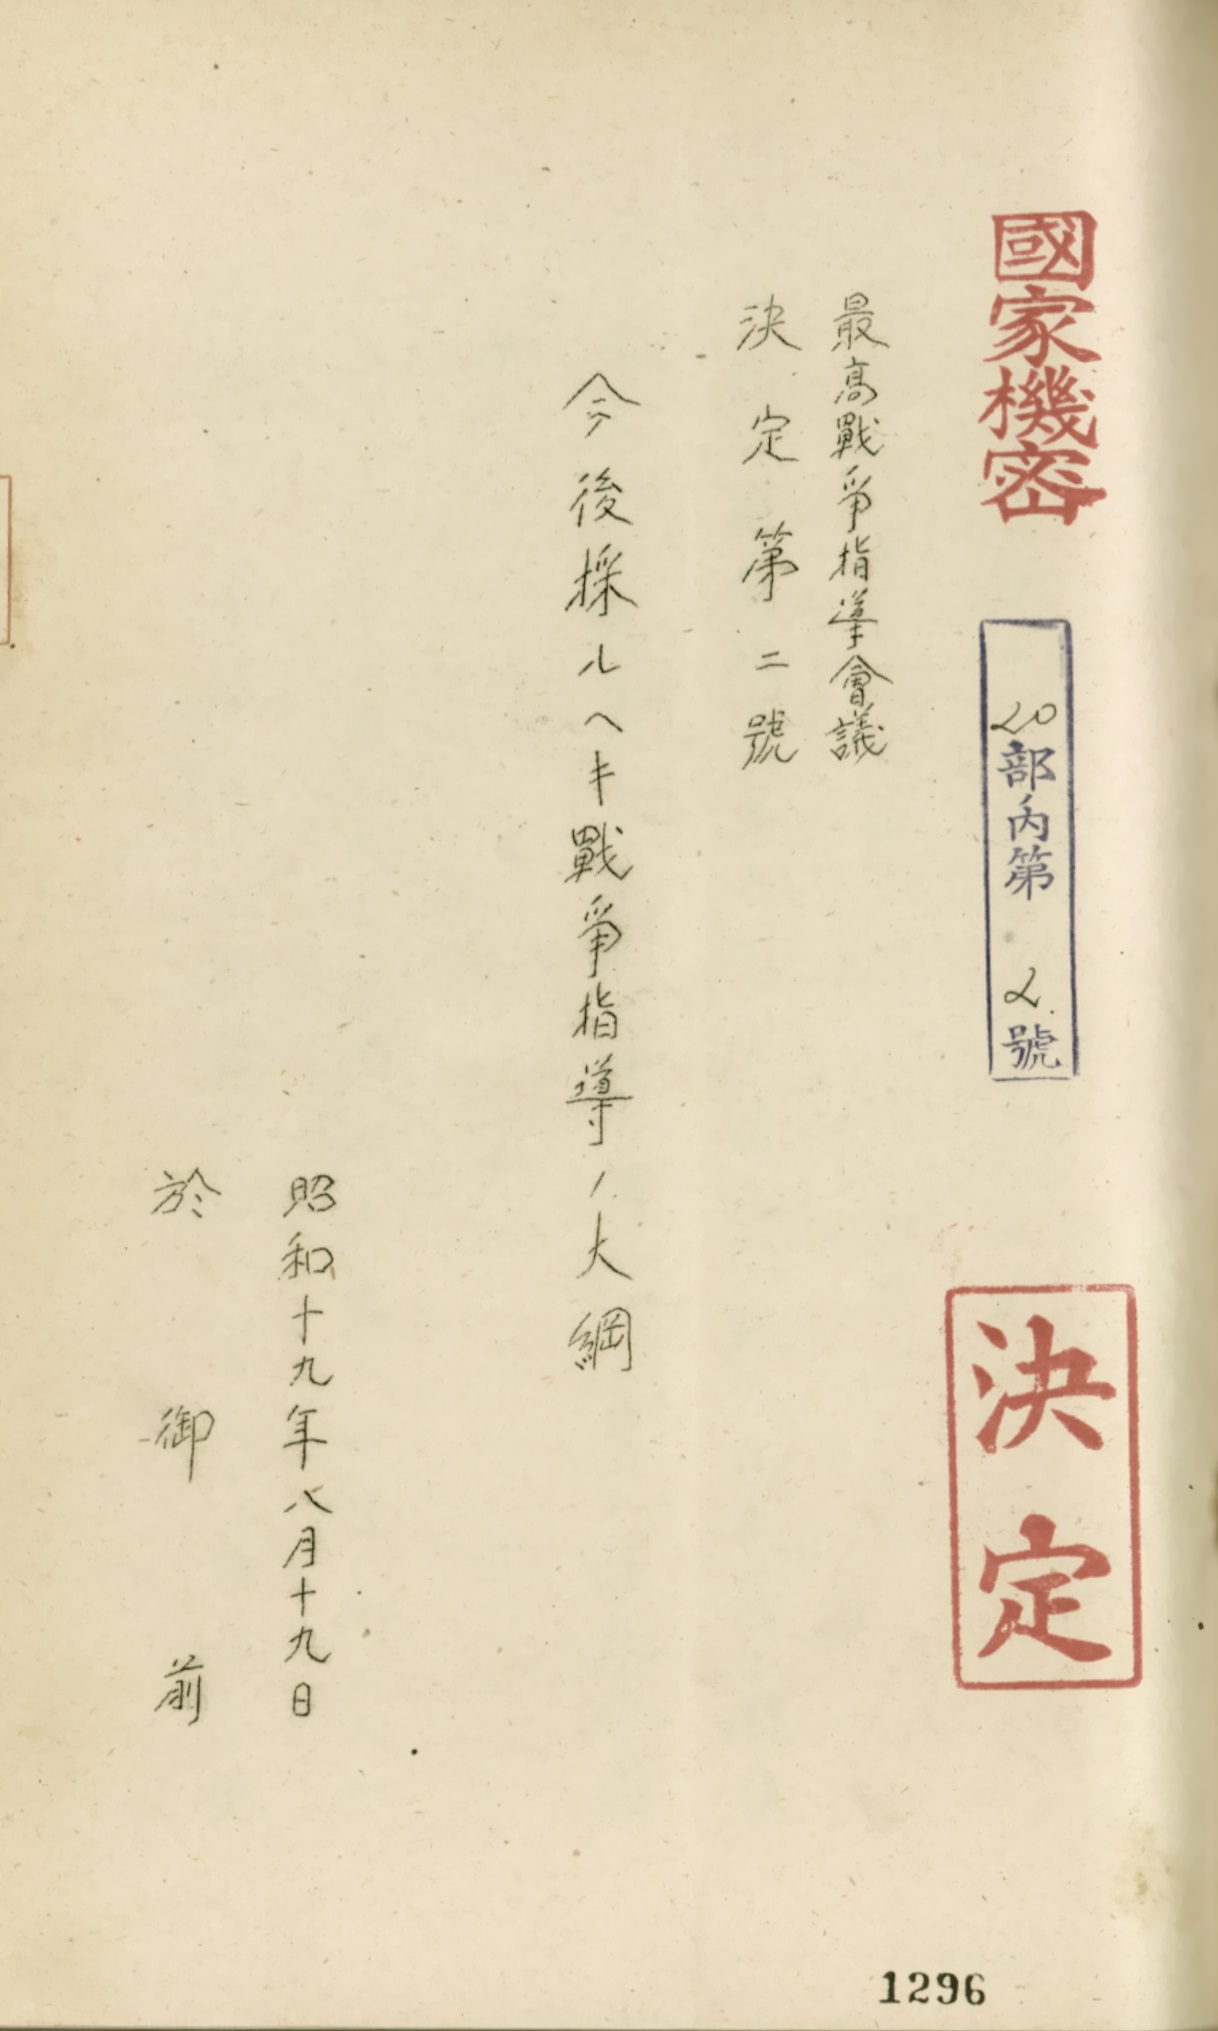 國家機密
20部内第2號
決定
最高戰爭指導會議
決定第二號
今後採ルヘキ戰爭指導ノ大綱
昭和十九年八月十九日
於御前
1296